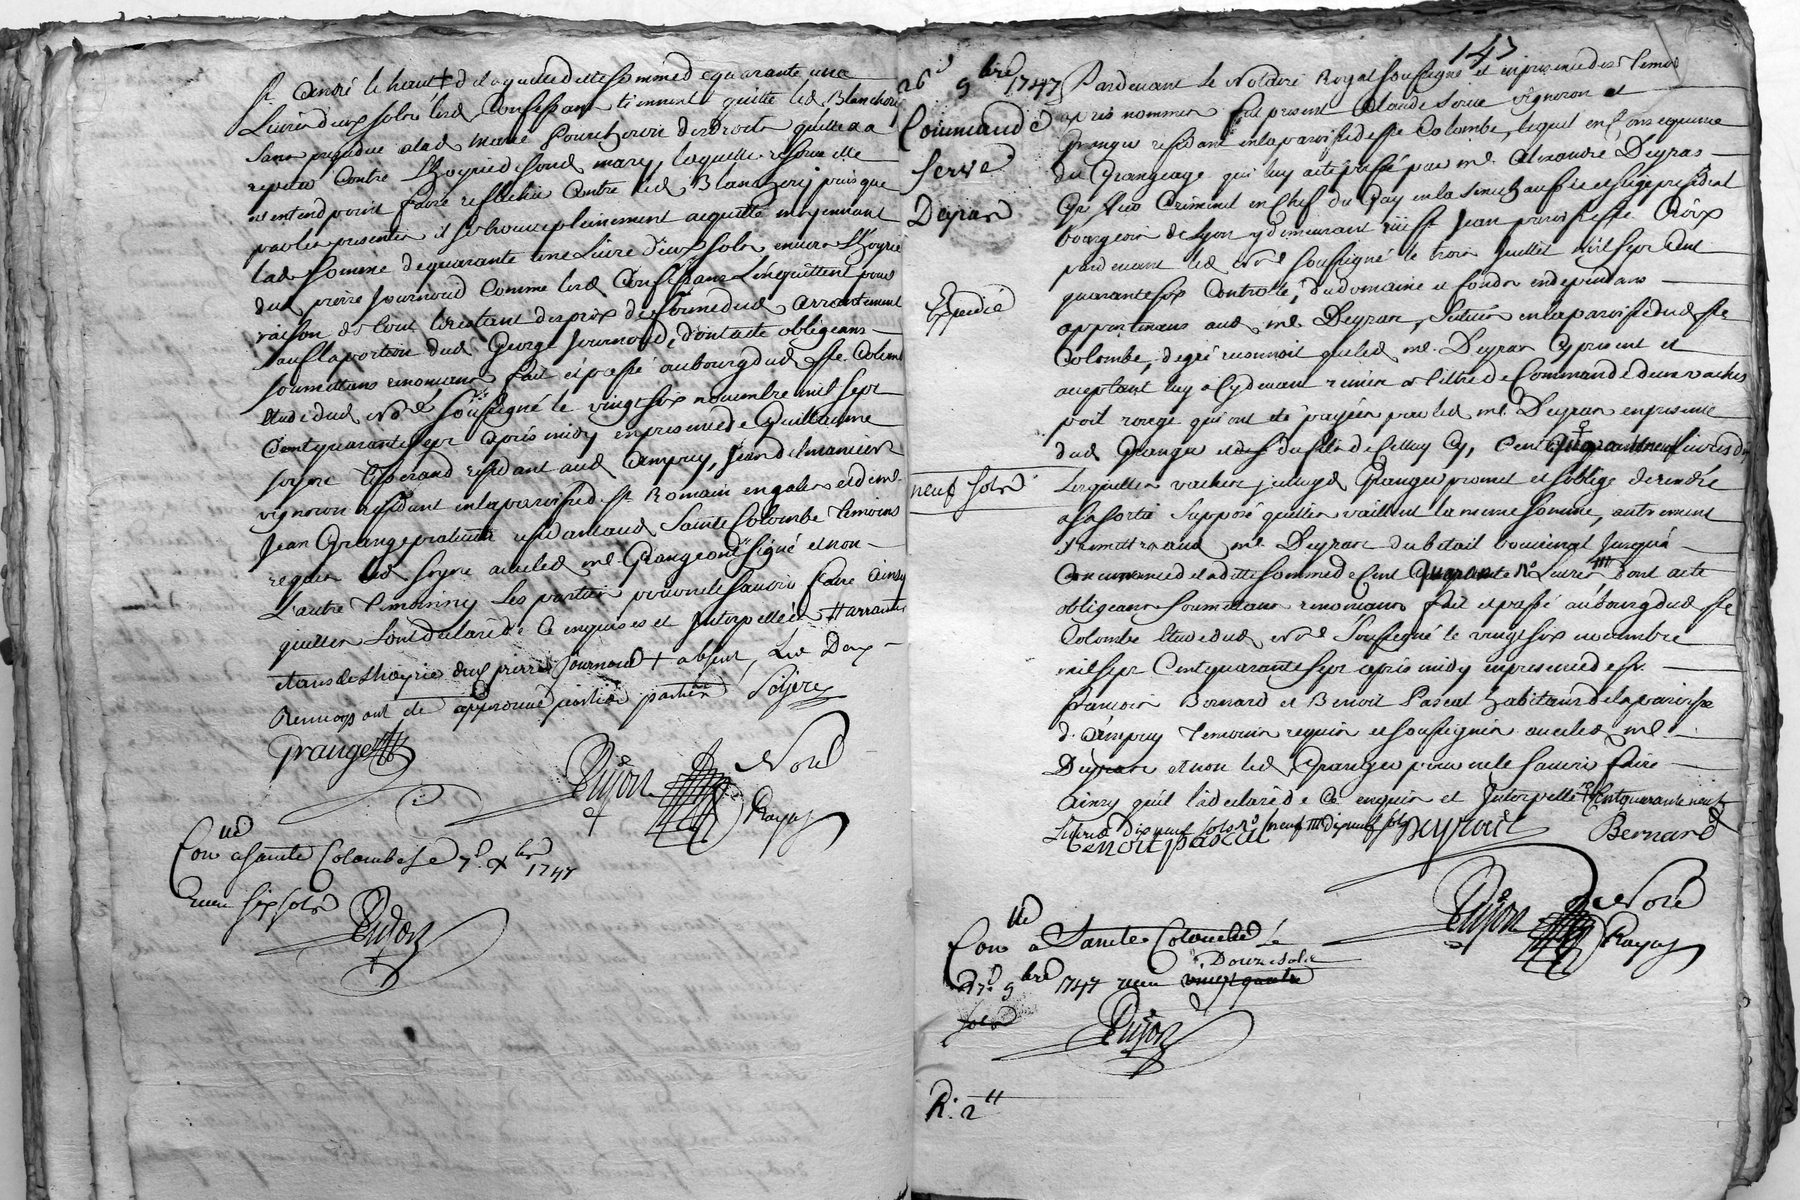 St André le haut + de laquelle ditte somme de quarante une
Livre deux sols lesd Confessans tiennent quitte led Blanchery
sans prejudice alad marie pourchoirie desdroits quelle a a
repeter Contre Lhoyrie de sond mary, laquelle
n'entend point faire reflechir Contre led Blanchery puisque
par les presentes il se trouve pleinement acquitté moyennant
lad somme de quarante une Livre deux sols envers Lhoyrie
dud pierre Journoud Comme lesd Confessans L'enquittent pour
raison de tout le restant du prix de
sauf la portion dud George Journoud, dont acte obligeans
soumettans renonceans fait et passé au bourg dud Ste Colombe
Etude dud Nore soussigné le vingt six novembre mil sept
Cent quarante sept après midy en presence de Guillaume
soyere tisserand residant aud Ampuy, Jean
vigneron residant en la paroisse de St Romain en gales et de me
Jean Grange praticien residant aud Sainte Colombe temoins
requis led soyere avec led me Grange ont signé et non
L'autre temoin ny les parties pour ne le sçavoir faire ainsy
quelles sont declaré de Ce enquises et Interpellées
etans de Lhoyrie dud pierre Journoud + absent, Les Deux
Renvoys ont été approuvé parties Soyere
Grange
Dujon Nore
Royal
Conllé a Sainte Colombe le 7e xbre 1747
Receu six sols
Dujon
147
26e 9bre 1747
Commande
Serve
Deyran
Expedié
neuf sols
Pardevant Le Notaire Royal soussigné et en presence des temoins
après nommés fut present Claude Serve vigneron et
Granger residant en la paroisse de Ste Colombe, lequel en Consequence
du Grangeage qui luy a été passé par me Alexandre Deyran
bourgeois de Lyon y demeurant rüe St Jean paroisse Ste Croix
pardevant led Nore soussigné le trois Juillet mil sept Cent
quarante six Controllé, du domaine et fonds en dependans
appartenans aud me Deyran, scitués en la paroisse dud Ste
Colombe, de gré reconnoit que led me Deyran Cy present et
acceptant luy a cy devant remis a titre de Commande deux vaches
poil rouge qui ont été payées par led me Deyran en presence
dud Granger Cent livres
Lesquelles vaches Iceluyd Granger promet et soblige de rendre
a sa sortie supposé quelles vaillent la meme somme, autrement
remettra aud me Deyran du betail bouvinal Jusqua
Concurrence de laditte somme de Cent quarante Livres dont acte
obligeans soumettans renonceans fait et passé au bourg dud Ste
Colombe Etude dud Nore soussigné le vingt six novembre
mil sept Cent quarante sept après midy en presence de sr
francois Bernard et Benoit Pascal habitans de la paroisse
d'Ampuy temoins requis et soussignés avec led me
Deyran et non led Granger pour ne le sçavoir faire
Ainsy qu'il l'a declaré de Ce enquis et Interpellé + Cent quarante neuf
Livres dix neuf sols
Benoit pascal Deyran Bernard
Dujon Nore
Royal
Conllé a Sainte Colombe le
27e 9bre 1747 receu vingt quatre
Douze sols
sols
Dujon
R: 2"